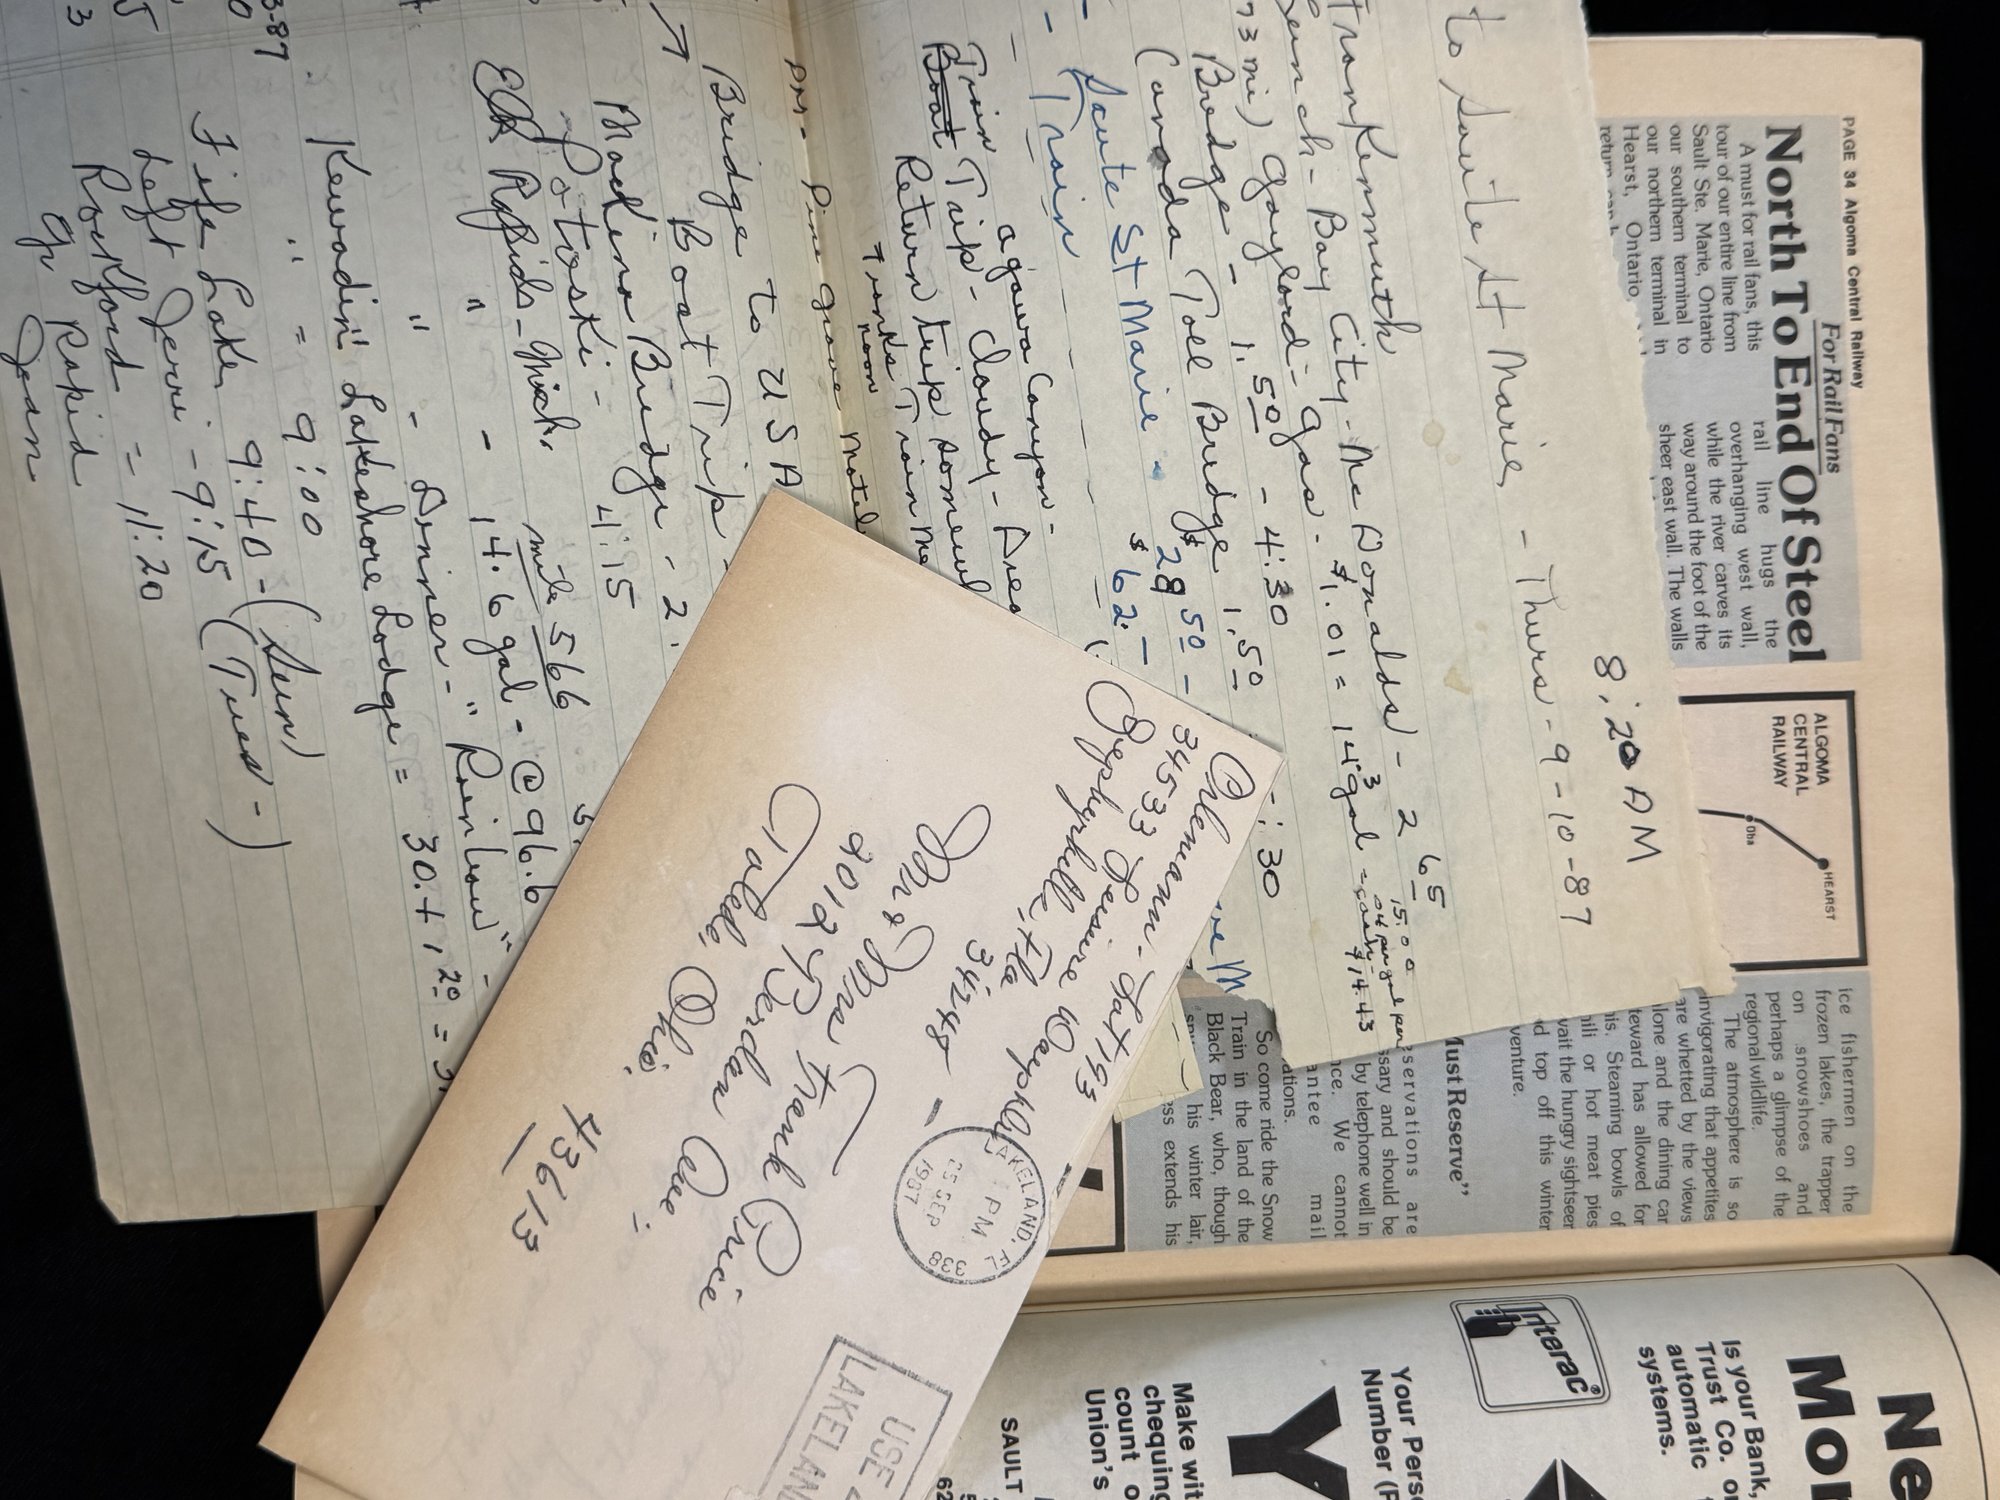 to Saute St Marie - Thurs - 9-10-87
8:20 AM
Frankenmuth
Lunch - Bay City - McDonalds - 2 65
73 mi) Gaylord - Gas - $1.01 = 14.3 gal = cash = $14.43
15.00
.04 per gal per
Bridge - 1.50 - 4:30
Canada Toll Bridge 1.50
Saute St Marie - $28 50 -
- Train - - - - $62. -
:30
agawa Canyon -
- Train Trip - Cloudy - Area
Boat
Return trip somewh
Tranks Train Me
noon
PM - Pine Grove Motel
Bridge to USA
→ Boat Trip -
Mackina Bridge - 2.
Potoski - 4:15
Elk Rapids - Mich. mile 566
" - 14.6 gal - @ 96.6
" - Dinner - "Rainbow" -
Kewadin" Lakeshore Lodge = 30. + 1.20 = 3
3-87 . " = 9:00
Fife Lake 9:40 - (Sun)
Left Jerri - 9:15 (Tues -)
Rockford = 11:20
Gr Rapid
Jean
PAGE 34 Algoma Central Railway
For Rail Fans
North To End Of Steel
A must for rail fans, this
tour of our entire line from
Sault Ste. Marie, Ontario
our southern terminal to
our northern terminal in
Hearst, Ontario
rail line hugs the
overhanging west wall,
while the river carves its
way around the foot of the
sheer east wall. The walls
ALGOMA
CENTRAL
RAILWAY
Oba
HEARST
ice fishermen on the
frozen lakes, the trapper
on snowshoes and
perhaps a glimpse of the
regional wildlife.
The atmosphere is so
invigorating that appetites
are whetted by the views
alone and the dining car
teward has allowed for
his. Steaming bowls of
hili or hot meat pies
wait the hungry sightseer
d top off this winter
venture.
Must Reserve"
eservations are
ssary and should be
by telephone well in
nce. We cannot
antee mail
ations.
So come ride the Snow
Train in the land of the
Black Bear, who, though
his winter lair,
ess extends his
Colemann - Lot 153
34533 Leisure Days
Zephyrhills, Fla
34248
LAKELAND, FL
PM
05 SEP
1987
338
Mr & Mrs Frank Price
2012 Berdan Ave.
Toledo, Ohio.
43613
USE
LAKELAN
Ne
Mo
Is your Bank,
Trust Co. o
automatic
systems.
Interac®
Your Pers
Number (P
Y
Make wit
chequing
count o
Union's
SAULT
62